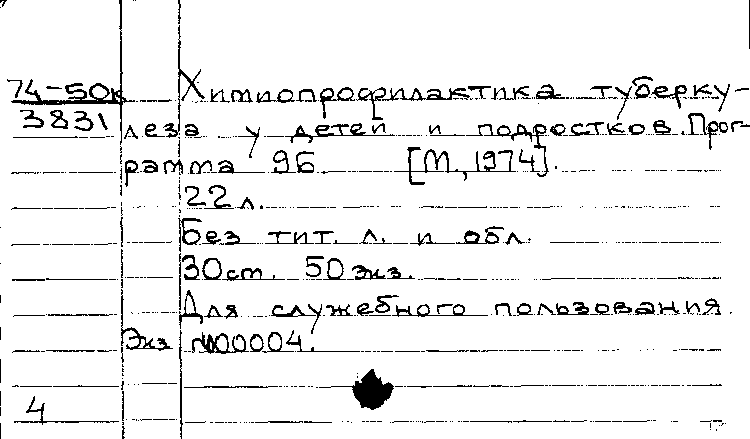 74-50к Химиопрофилактика туберку-
3831 леза у детей и подростков. Прог-
рамма 9Б. [М., 1974].
22 л.
Без тит. л. и обл.
30 см. 50 экз.
Для служебного пользования.
Экз №00004.
4